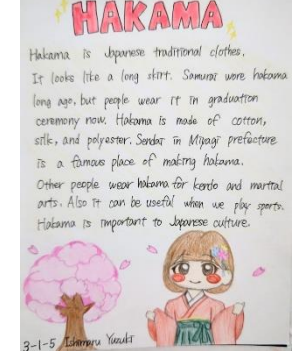 HAKAMA
Hakama is Japanese traditional clothes.
It looks like a long skirt. Samurai wore hakama
long ago, but people wear it in graduation
ceremony now. Hakama is made of cotton,
silk, and polyester. Sendai in Miyagi prefecture
is a famous place of making hakama.
Other people wear hakama for kendo and martial
arts. Also it can be useful when we play sports.
Hakama is important to Japanese culture.
3-1-5 Ishimaru Yuzuki